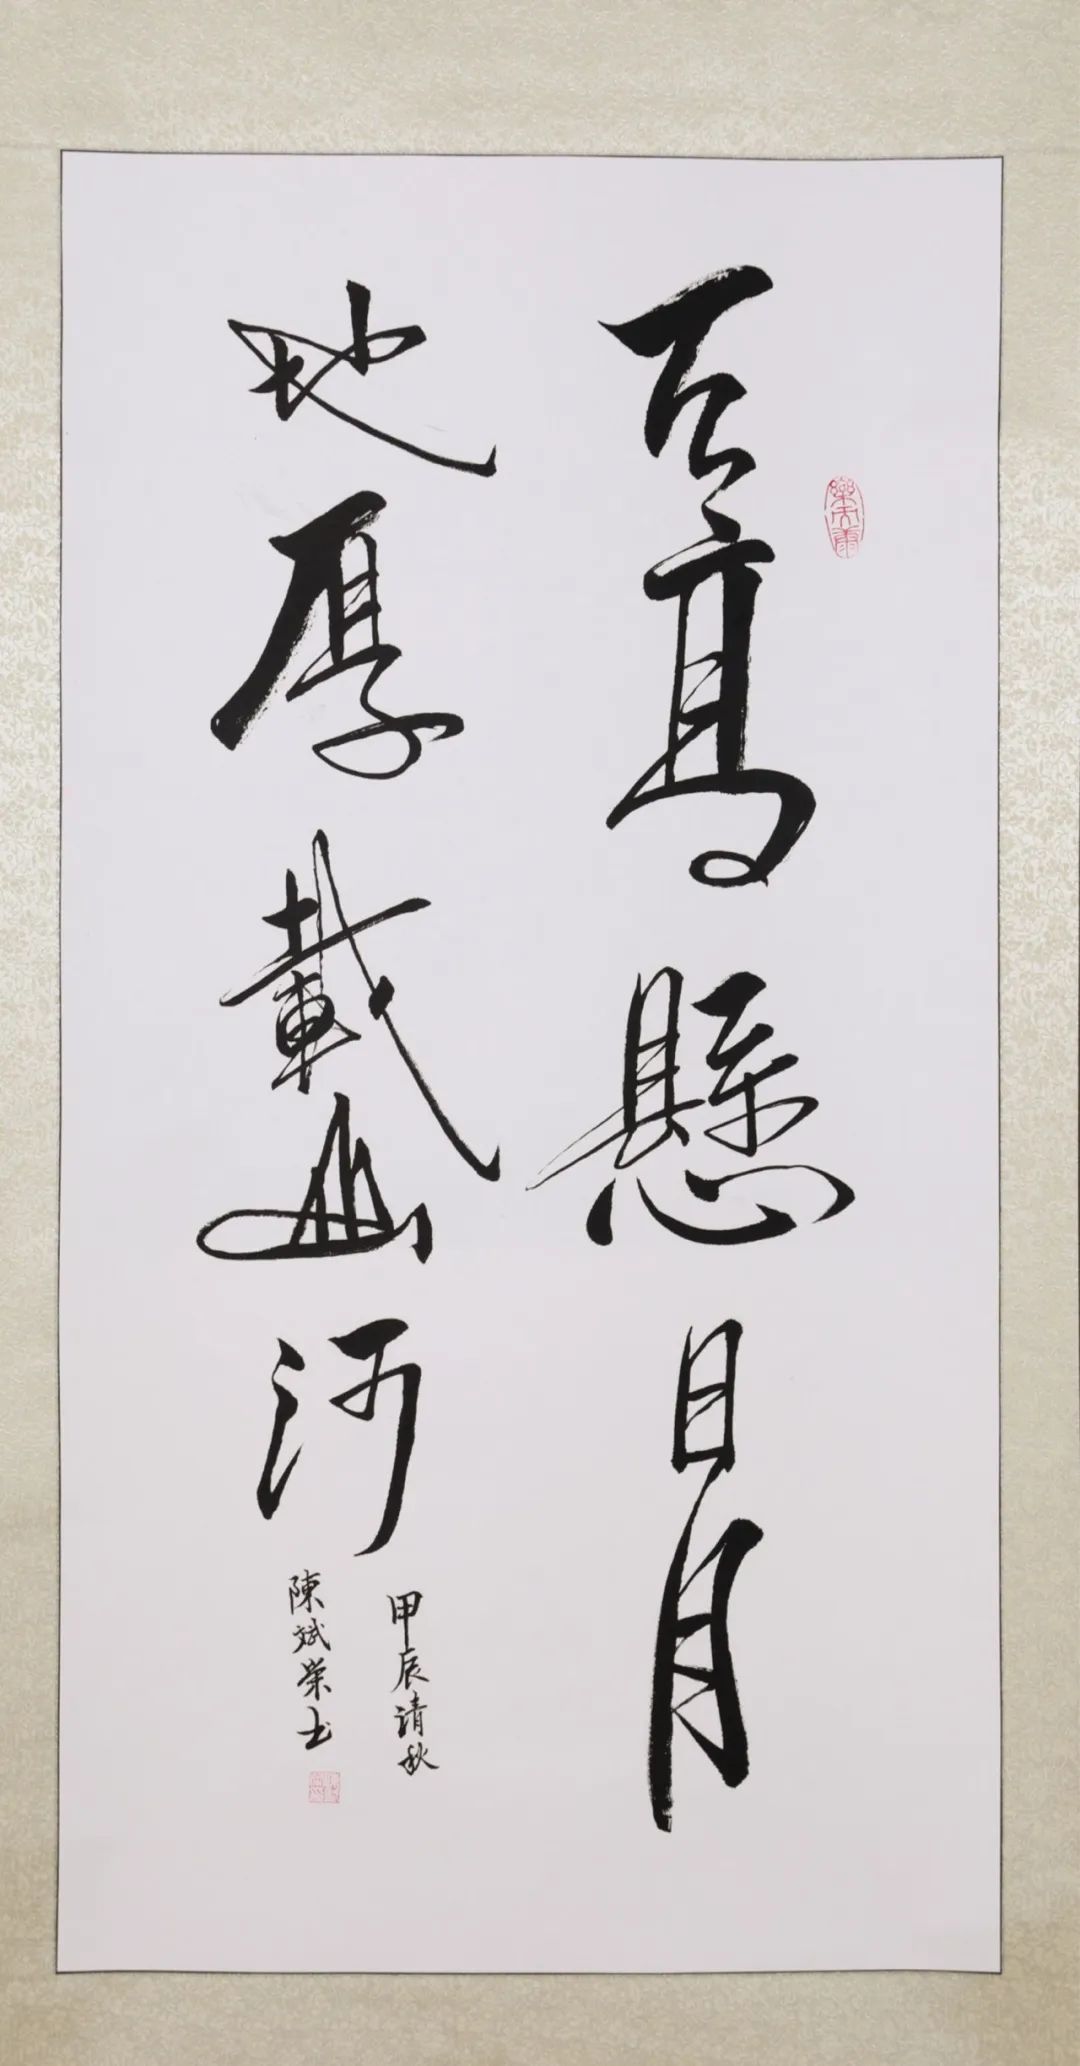 天高懸日月
地厚載山河
甲辰清秋
陳斌榮书